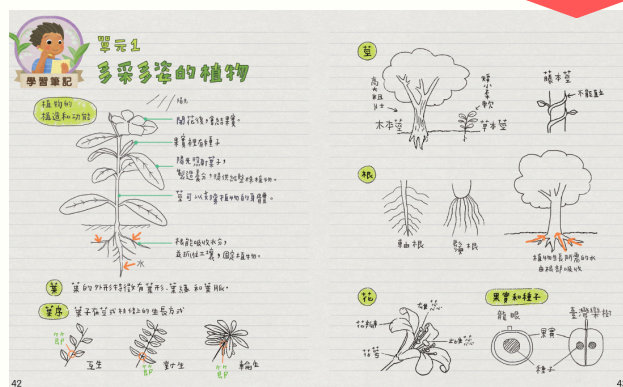 學習筆記
單元1
多采多姿的植物
植物的
構造和功能
陽光
開花後，會結果實。
果實裡有種子
陽光照射葉子，
製造養分，提供給整株植物。
莖可以支撐植物的身體。
根能吸收水分，
並抓住土壤，固定植物。
水
葉
葉的外形特徵有葉形、葉緣和葉脈。
葉序
葉子在莖或枝條上的生長方式
節
互生
節
對生
節
輪生
42
莖
高大粗壯
木本莖
矮小柔軟
草本莖
藤本莖
不能直立
根
軸根
鬚根
植物生長所需的水
由根部吸收
花
雌蕊
花瓣
雄蕊
花萼
果實和種子
龍眼
臺灣欒樹
果實
種子